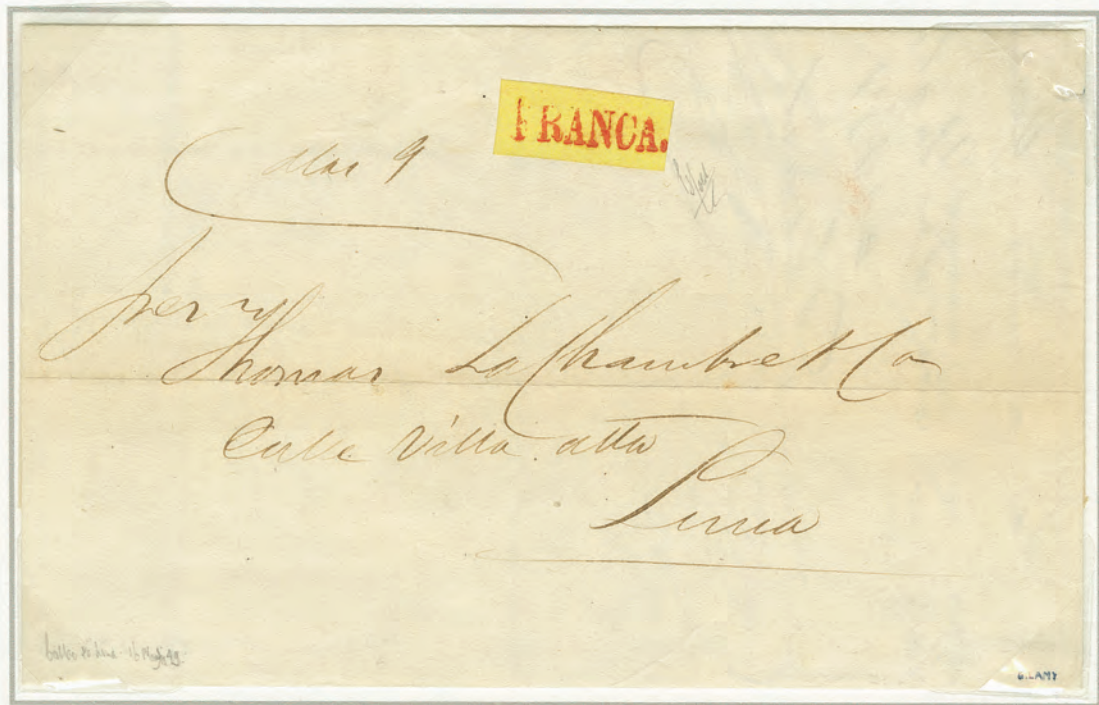 FRANCA.
Mar 9
Thomas La Chambre & Co
Calle Villa alta
Lima
G. LAMY